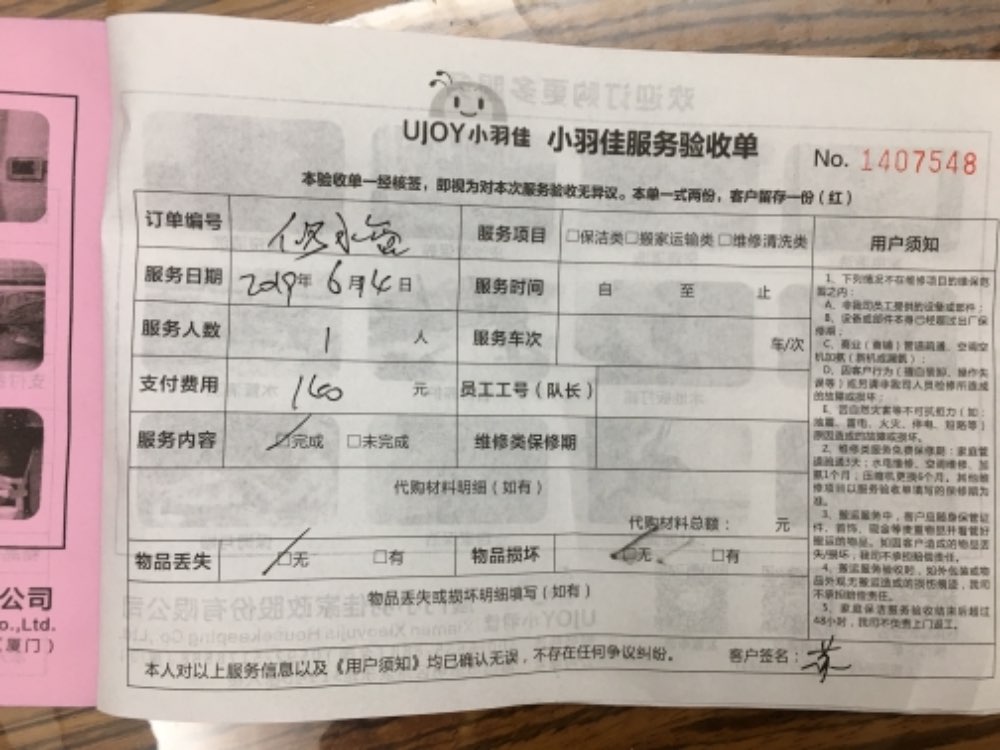 UJOY小羽佳 小羽佳服务验收单
No. 1407548
本验收单一经核签，即视为对本次服务验收无异议。本单一式两份，客户留存一份（红）
订单编号 服务项目 □保洁类□搬家运输类□维修清洗类
服务日期 2019年 6月4日 服务时间 自 至 止
服务人数 1 人 服务车次 车/次
支付费用 160 元 员工工号（队长）
服务内容 □完成 □未完成 维修类保修期
代购材料明细（如有）
代购材料总额： 元
物品丢失 □无 □有 物品损坏 □无 □有
物品丢失或损坏明细填写（如有）
本人对以上服务信息以及《用户须知》均已确认无误，不存在任何争议纠纷。 客户签名：
用户须知
1、下列情况不在维修项目的维保范
围之内：
A、非我司员工提供的设备或部件；
B、设备或部件本身已经超过出厂保
修期；
C、商业（商铺）管道疏通、空调空
机加氟（拆机或漏氟）；
D、因客户行为（擅自装卸、操作失
误等）或另请非我司人员检修所造成
的故障或损坏；
E、因自然灾害等不可抗拒力（如：
地震、雷电、火灾、停电、短路等）
原因造成的故障或损坏。
2、维修类服务免费保修期：家庭管
道疏通3天；水电维修、空调维修、加
氟1个月；压缩机更换6个月。其他维
修项目以服务验收单填写的保修期为
准。
3、搬运服务中，客户应随身保管证
件、首饰、现金等贵重物品并看管好
搬运的物品。如因客户造成的物品丢
失/损坏，我司不承担赔偿责任。
4、搬运服务验收时，如外包装或物
品外观无搬运造成的损伤痕迹，我司
不承担赔偿责任。
5、家庭保洁服务验收结束后超过
48小时，我司不负责上门返工。
公司
o.,Ltd.
（厦门）